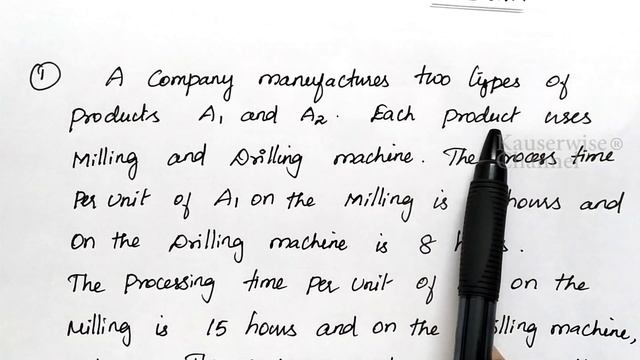 1 A Company manufactures two types of
products A1 and A2. Each product uses
Milling and Drilling machine. The process time
Per unit of A1 on the Milling is hours and
on the Drilling machine is 8
The Processing time per unit of on the
Milling is 15 hours and on the machine,
Kauserwise®
Channel